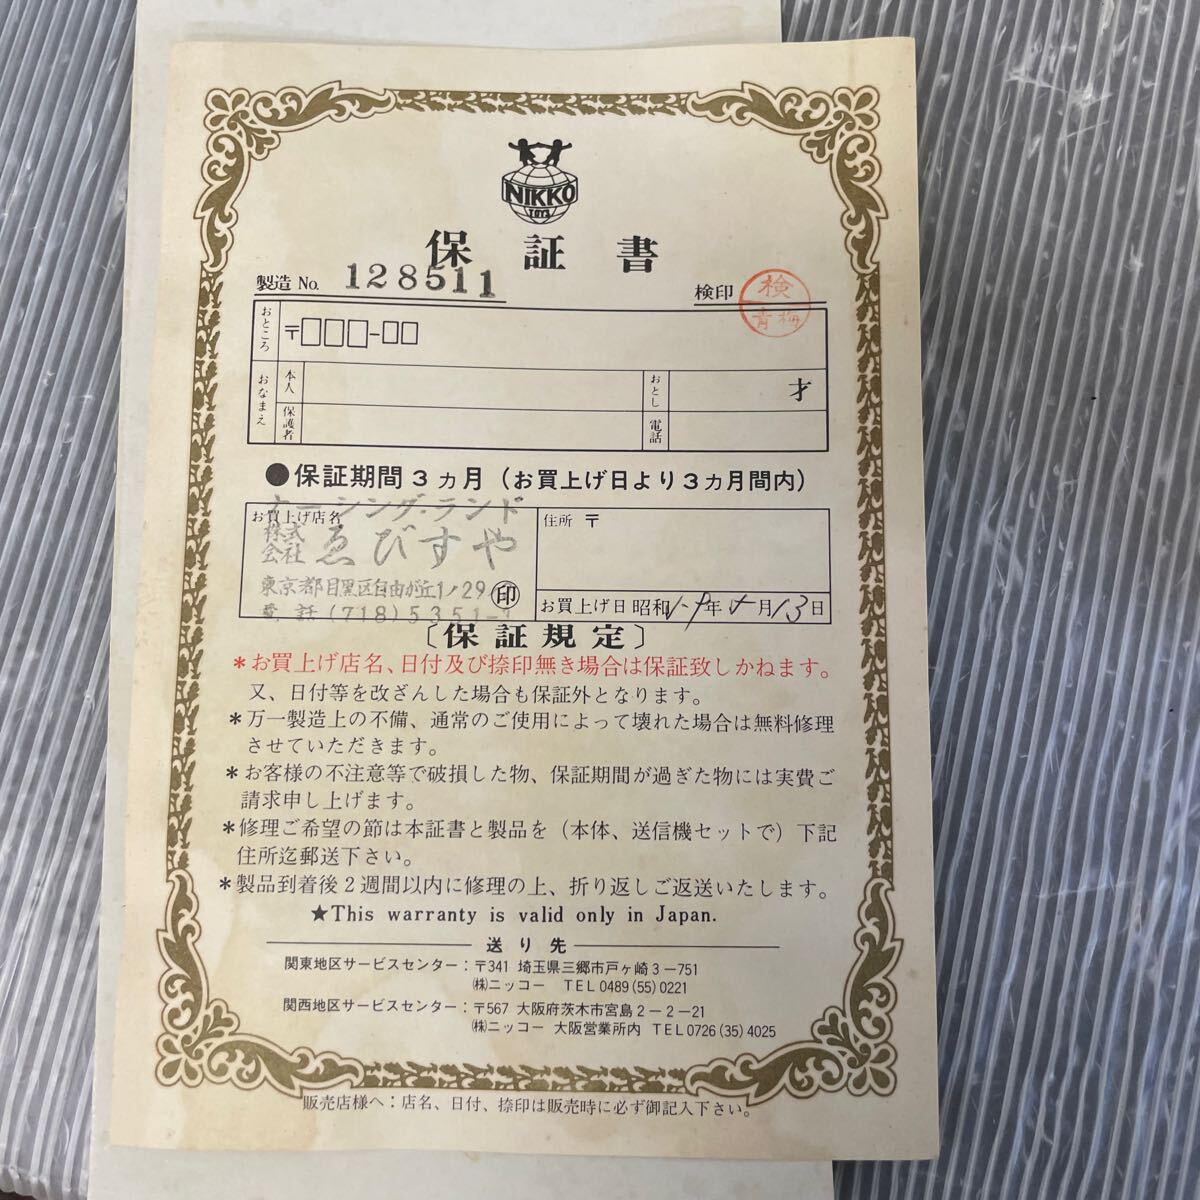 NIKKO
TOYS
保証書
製造 No. 128511
検印 検 青梅
おところ 〒□□□-□□
おなまえ 本人 おとし 才
保護者 電話
●保証期間3ヵ月（お買上げ日より3ヵ月間内）
お買上げ店名
株式会社 ゑびすや
東京都目黒区自由が丘1ノ29
電話(718)5351
印
住所 〒
お買上げ日 昭和 年 月13日
〔保証規定〕
＊お買上げ店名、日付及び捺印無き場合は保証致しかねます。
又、日付等を改ざんした場合も保証外となります。
＊万一製造上の不備、通常のご使用によって壊れた場合は無料修理
させていただきます。
＊お客様の不注意等で破損した物、保証期間が過ぎた物には実費ご
請求申し上げます。
＊修理ご希望の節は本証書と製品を（本体、送信機セットで）下記
住所迄郵送下さい。
＊製品到着後2週間以内に修理の上、折り返しご返送いたします。
★This warranty is valid only in Japan.
送り先
関東地区サービスセンター：〒341 埼玉県三郷市戸ヶ崎3－751
㈱ニッコー TEL0489(55)0221
関西地区サービスセンター：〒567 大阪府茨木市宮島2－2－21
㈱ニッコー 大阪営業所内 TEL0726(35)4025
販売店様へ：店名、日付、捺印は販売時に必ず御記入下さい。